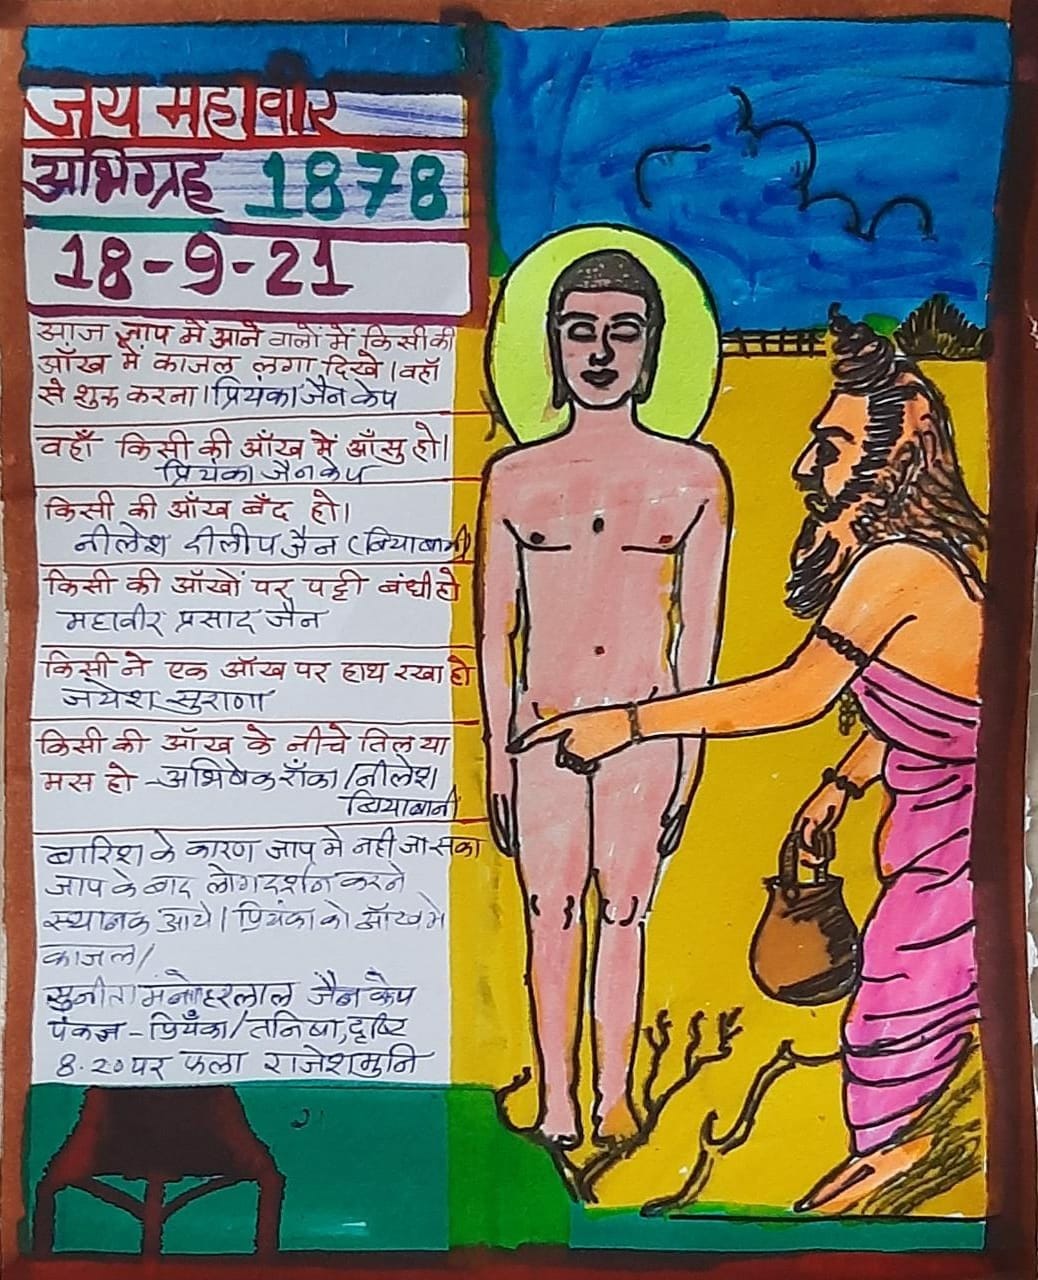 जय महावीर
अभिग्रह 1878
18-9-21
आज जाप में आने वालों में किसी की
आँख में काजल लगा दिखे। वहाँ
से शुरू करना। प्रियंका जैन केप
वहाँ किसी की आँख में आँसु हो।
प्रियंका जैन केप
किसी की आँख बँद हो।
नीलेश दीलीप जैन (बियाबानी)
किसी की आँखों पर पट्टी बंधी हो
महावीर प्रसाद जैन
किसी ने एक आँख पर हाथ रखा हो
जयेश सुराणा
किसी की आँख के नीचे तिल या
मस हो - अभिषेक राँका / नीलेश
बियाबानी
बारिश के कारण जाप मे नही जा सका
जाप के बाद लोग दर्शन करने
स्थानक आये। प्रियंका को आँख मे
काजल/
सुनीता मनोहरलाल जैन केप
पंकज - प्रियँका / तनिषा, दृष्टि
8.20 पर फला राजेशमुनि